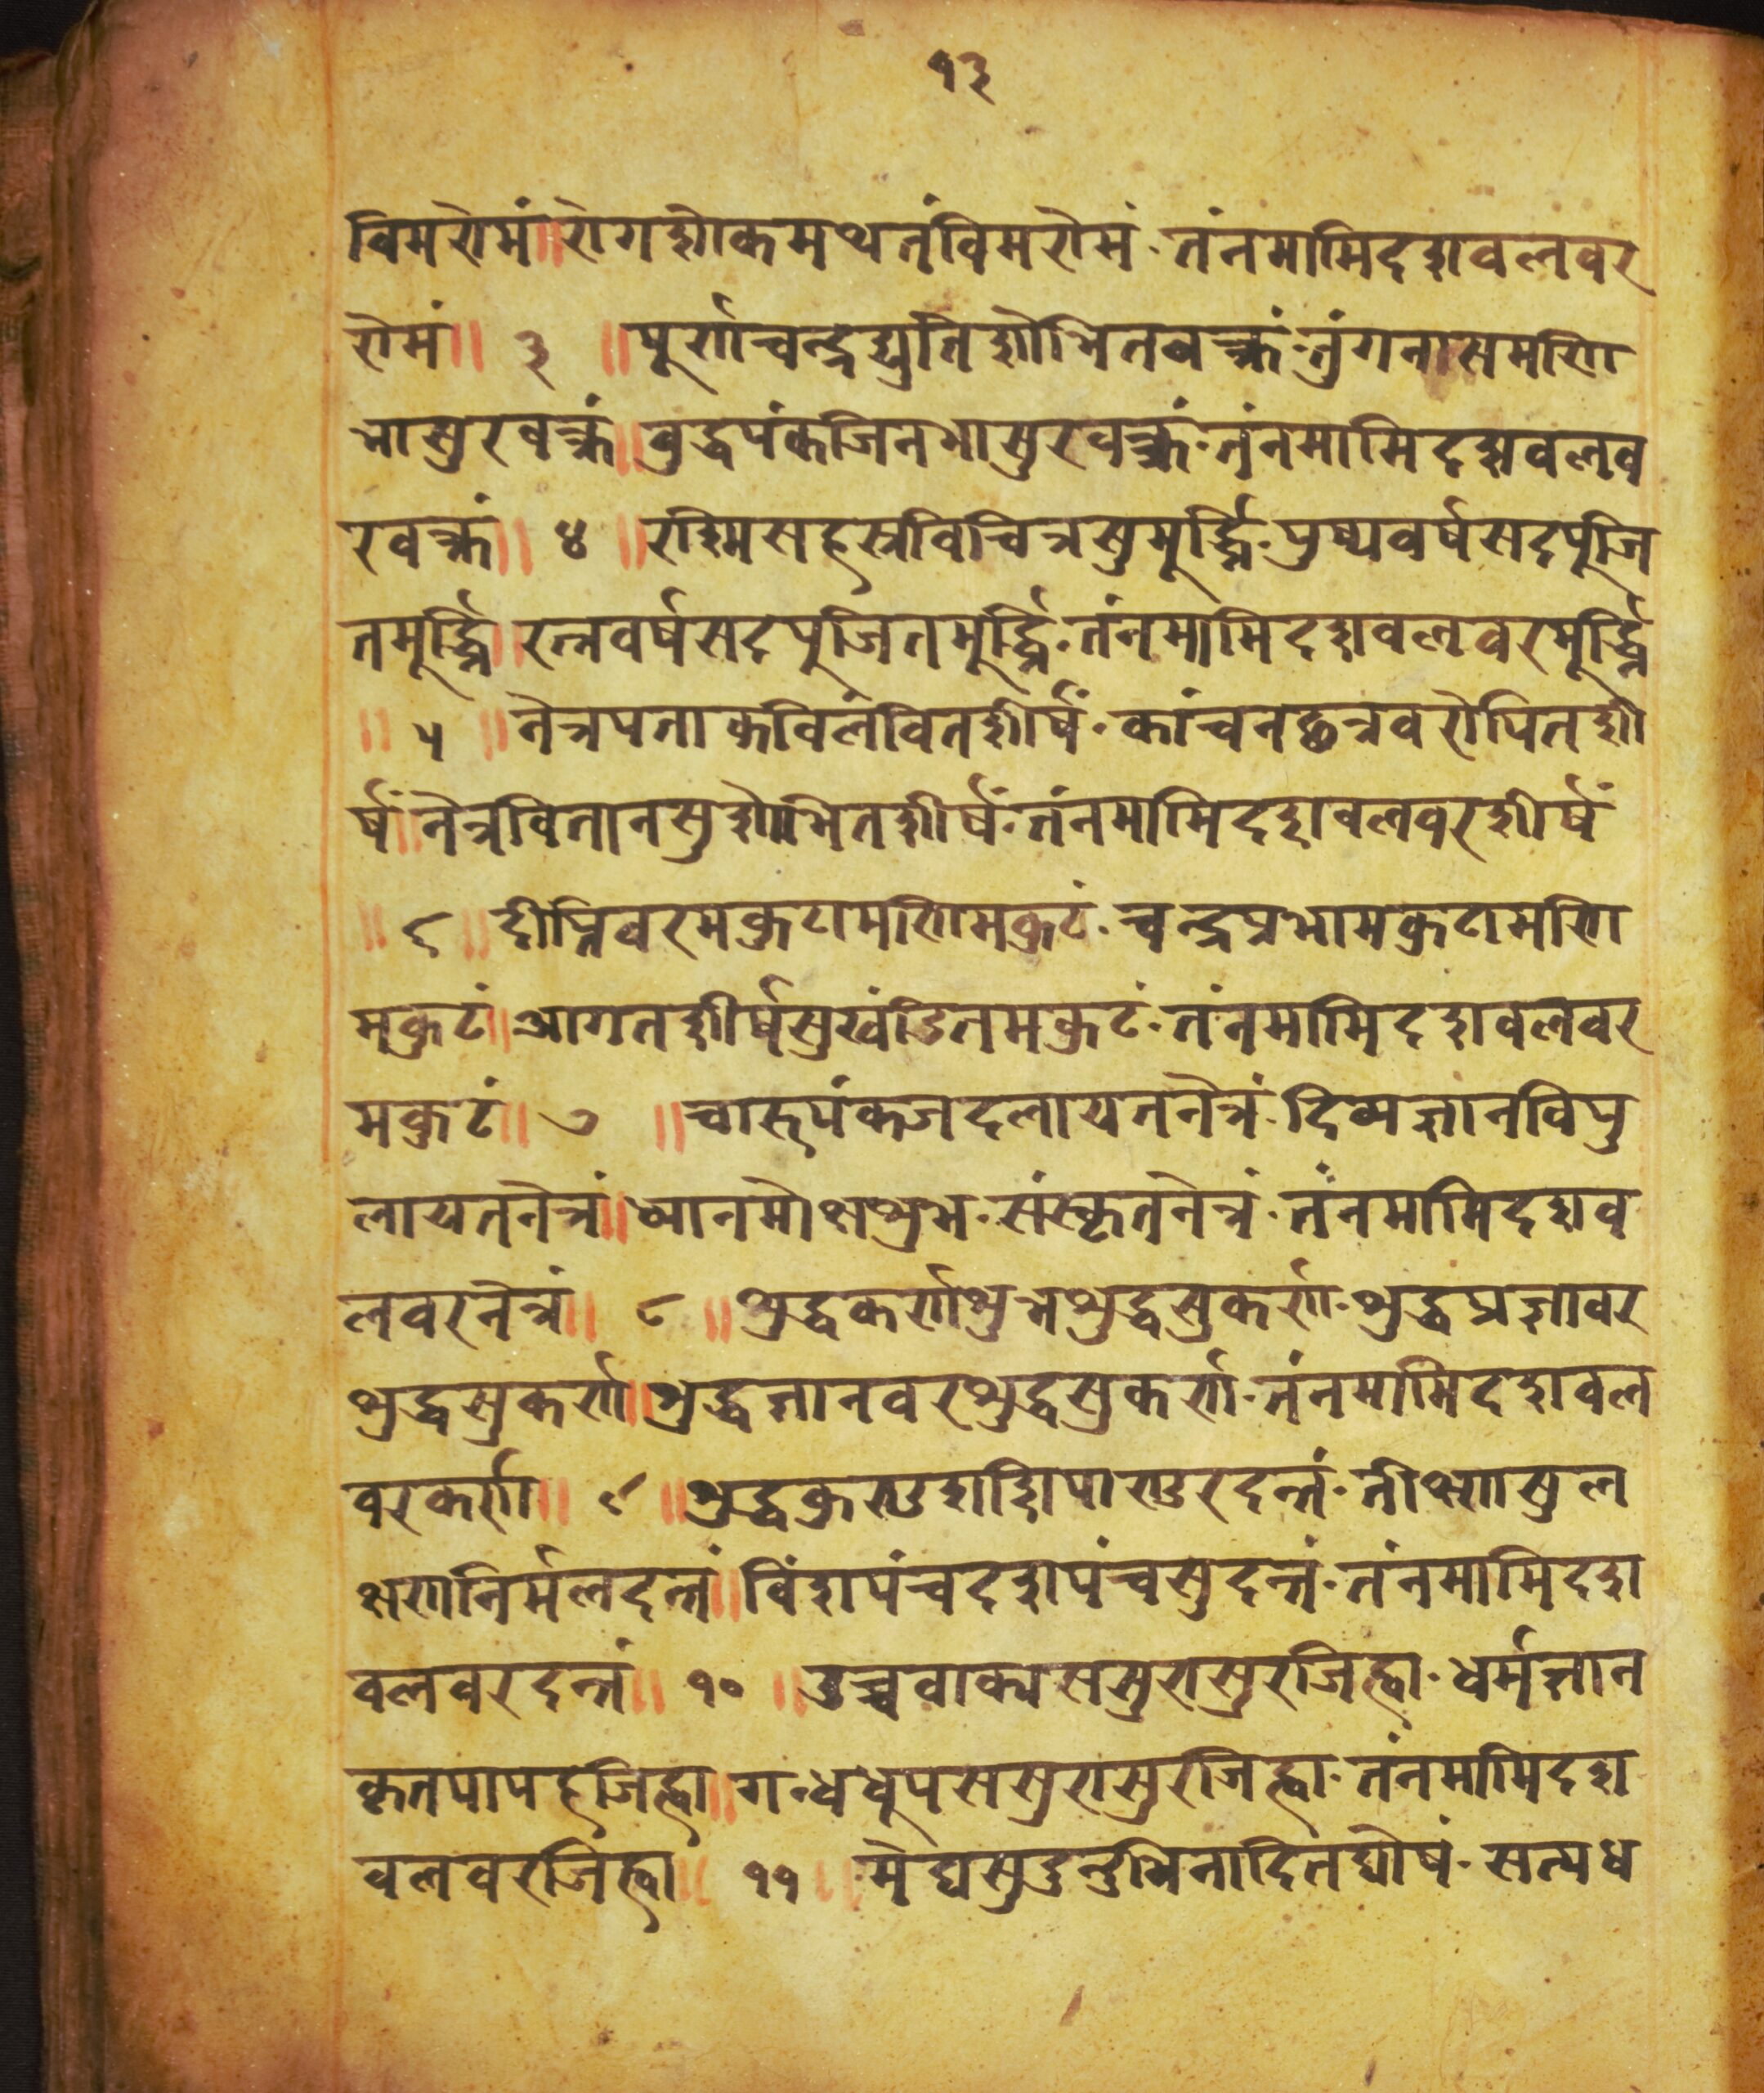 १३
विमरोमं॥रोगशोकमथतंविमरोमं·तंनमामिदशवलवर
रोमं॥ ३ ॥पूर्णचन्द्रद्युतिशोभितवक्त्रं·तुंगनासमणि
भासुरवक्त्रं॥वुद्धपंकजिनभासुरवक्त्रं·तंनमामिदशवलव
रवक्त्रं॥ ४ ॥रश्मिसहस्रविचित्रसुमूर्द्ध्नि·पुष्पवर्षसदपूजि
तमूर्द्ध्नि॥रत्नवर्षसदपुजितमूर्द्ध्नि·तंनमामिदशवलवरमूर्द्ध्नि
॥ ५ ॥नेत्रपताकविलंवितशीर्षं·कांचनछत्रवरोपितशी
र्षं॥नेत्रवितानसुशोभितशीर्षं·तंनमामिदशवलवरशीर्षं
॥ ६ ॥दीप्तिवरमकुटामणिमकुटं·चन्द्रप्रभामकुटामणि
मकुटं॥आगतशीर्षसुखंडितमकुटं·तंनमामिदशवलवर
मकुटं॥ ७ ॥चारुपंकजदलायतनेत्रं·दिव्यज्ञानविपु
लायतनेत्रं॥ध्यानमोक्षशुभ·संस्कृतनेत्रं·तंनमामिदशव
लवरनेत्रं॥ ८ ॥शुद्धकर्णशुभशुद्धसुकर्ण·शुद्धप्रज्ञावर
शुद्धसुकर्ण॥शुद्धज्ञानवरशुद्धसुकर्ण·तंनमामिदशवल
वरकर्ण॥ ९ ॥शुद्धकुण्डशशिपाण्डुरदन्तं·तीक्ष्णसुल
क्षणनिर्मलदन्तं॥विंशपंचदशपंचसुदन्तं·तंनमामिदश
वलवरदन्तं॥ १० ॥उच्चवाक्यससुरासुरजिह्वा·धर्मज्ञान
कृतपापहजिह्वा॥गन्धधूपससुरासुरजिह्वा·तंनमामिदश
वलवरजिंह्वा॥ ११ ॥मेघसुदुन्दुभिनादितघोषं·सत्यध